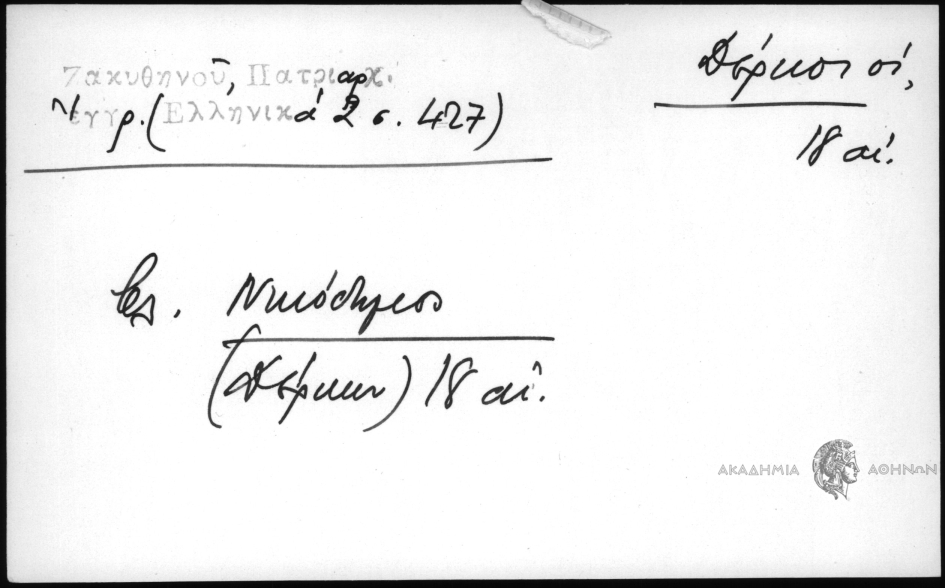 Ζακυθηνοῦ, Πατριαρχ.
ἔγγρ. (Ἑλληνικά 2 σ. 427)
Δέρκοι οἱ,
18 αἰ.
βλ. Νικόδημος
(Δέρκων) 18 αἰ.
ΑΚΑΔΗΜΙΑ ΑΘΗΝΩΝ